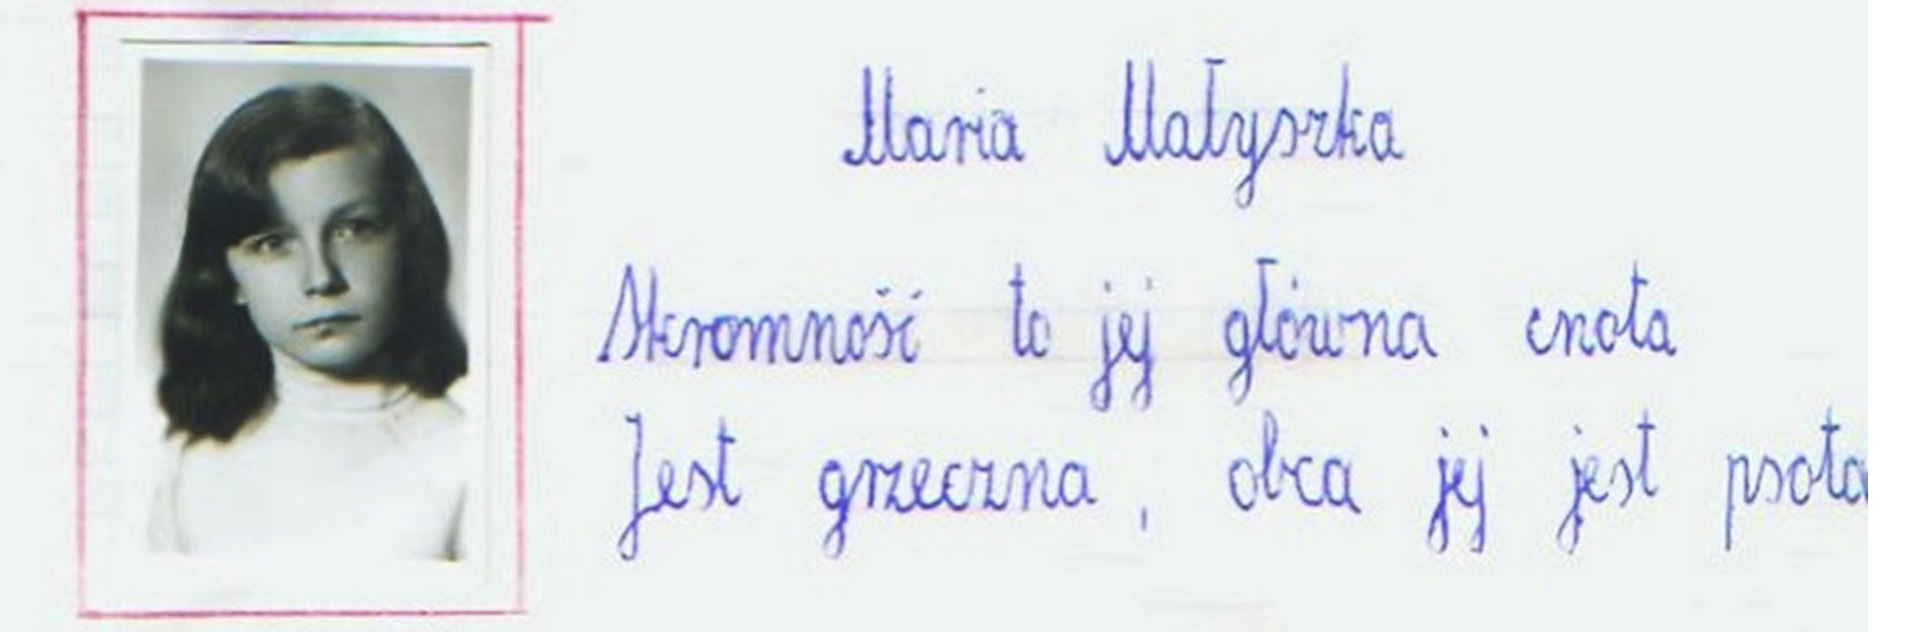 Maria Małyszka
Skromność to jej główna cnota
Jest grzeczna, obca jej jest psota